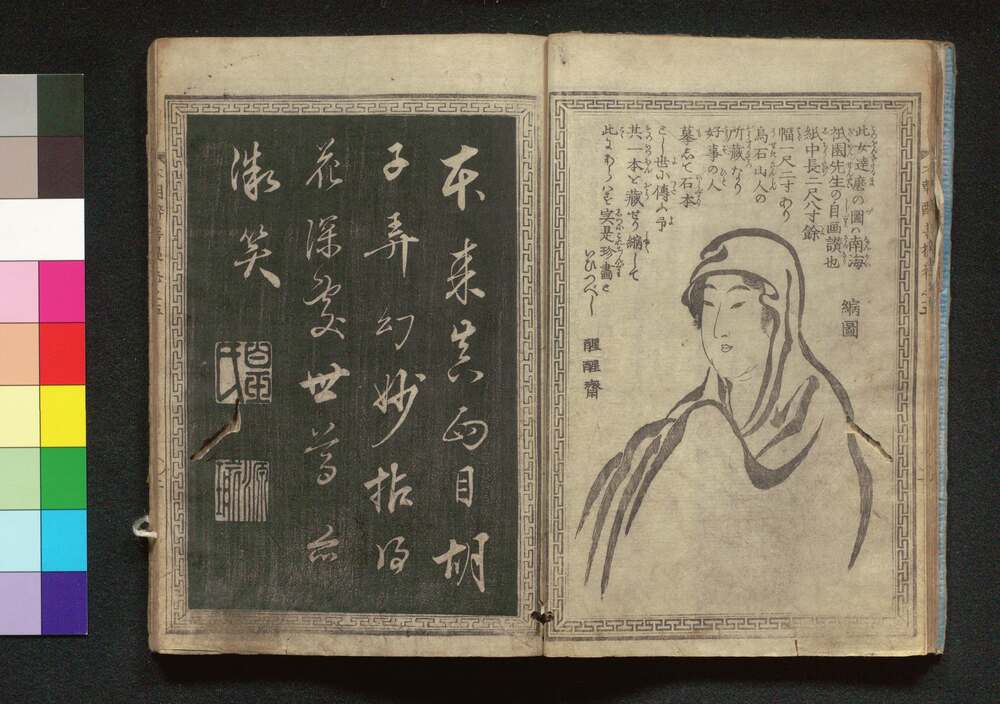 此女達磨の圖ハ南海
祇園先生の自画讃也
紙中長二尺八寸餘
幅一尺二寸あり
烏石山人の
所蔵なり
好事の人
摹して石本
とし世に傳ふ予
其一本を蔵せり縮して
此にあらハす実是珍畫と
いひつべし
醒醒齋
縮圖
本来真面目胡
子弄幻妙拈得
花深處世尊亦
微笑
源